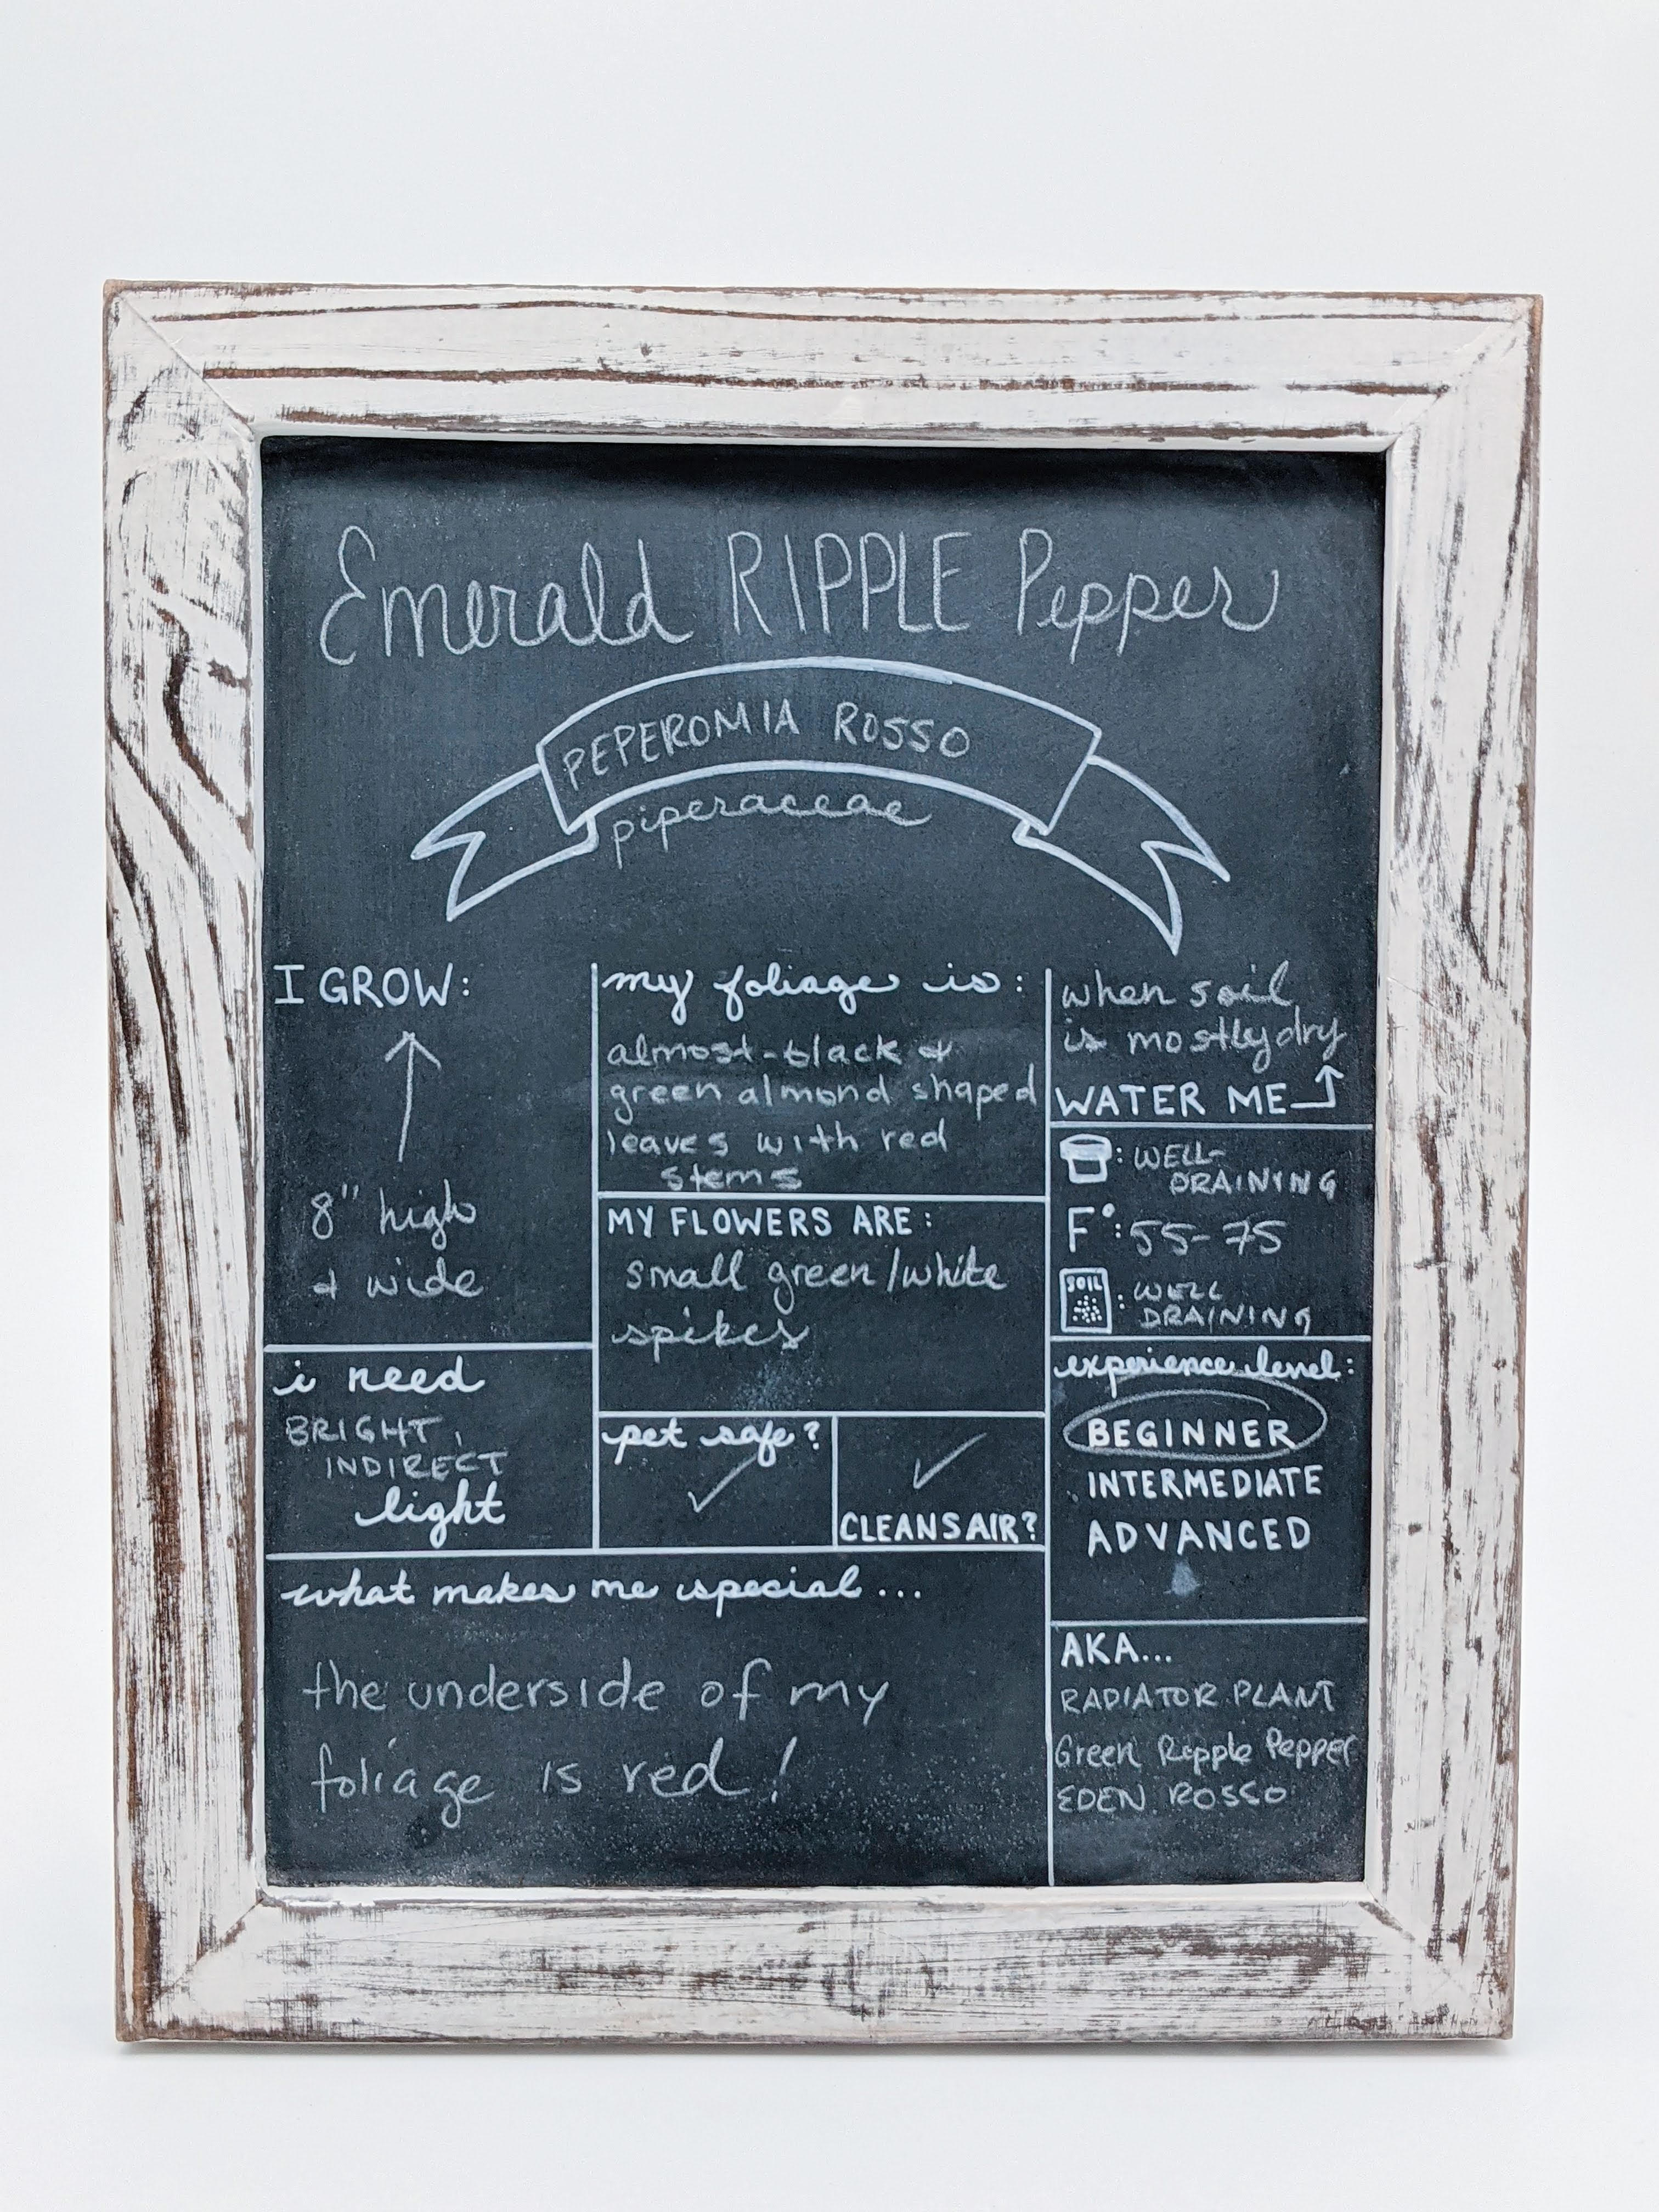 Emerald RIPPLE Pepper
PEPEROMIA ROSSO
piperaceae
I GROW:
8" high
& wide
i need
BRIGHT,
INDIRECT
light
my foliage is:
almost-black &
green almond shaped
leaves with red
stems
MY FLOWERS ARE:
small green/white
spikes
pet safe?
✓
✓
CLEANS AIR?
what makes me special...
the underside of my
foliage is red!
when soil
is mostly dry
WATER ME
: WELL-
DRAINING
F°: 55-75
SOIL
: WELL
DRAINING
experience level:
BEGINNER
INTERMEDIATE
ADVANCED
AKA...
RADIATOR PLANT
Green Ripple Pepper
EDEN ROSSO